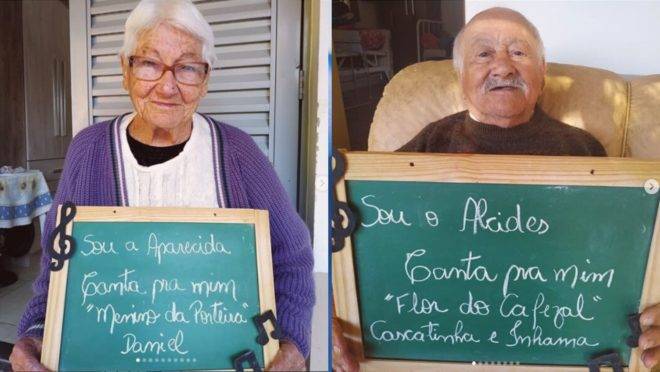 Sou a Aparecida
Canta pra mim
"Menino da Porteira"
Daniel
Sou o Alcides
Canta pra mim
"Flor do Cafezal"
Cascatinha e Inhama